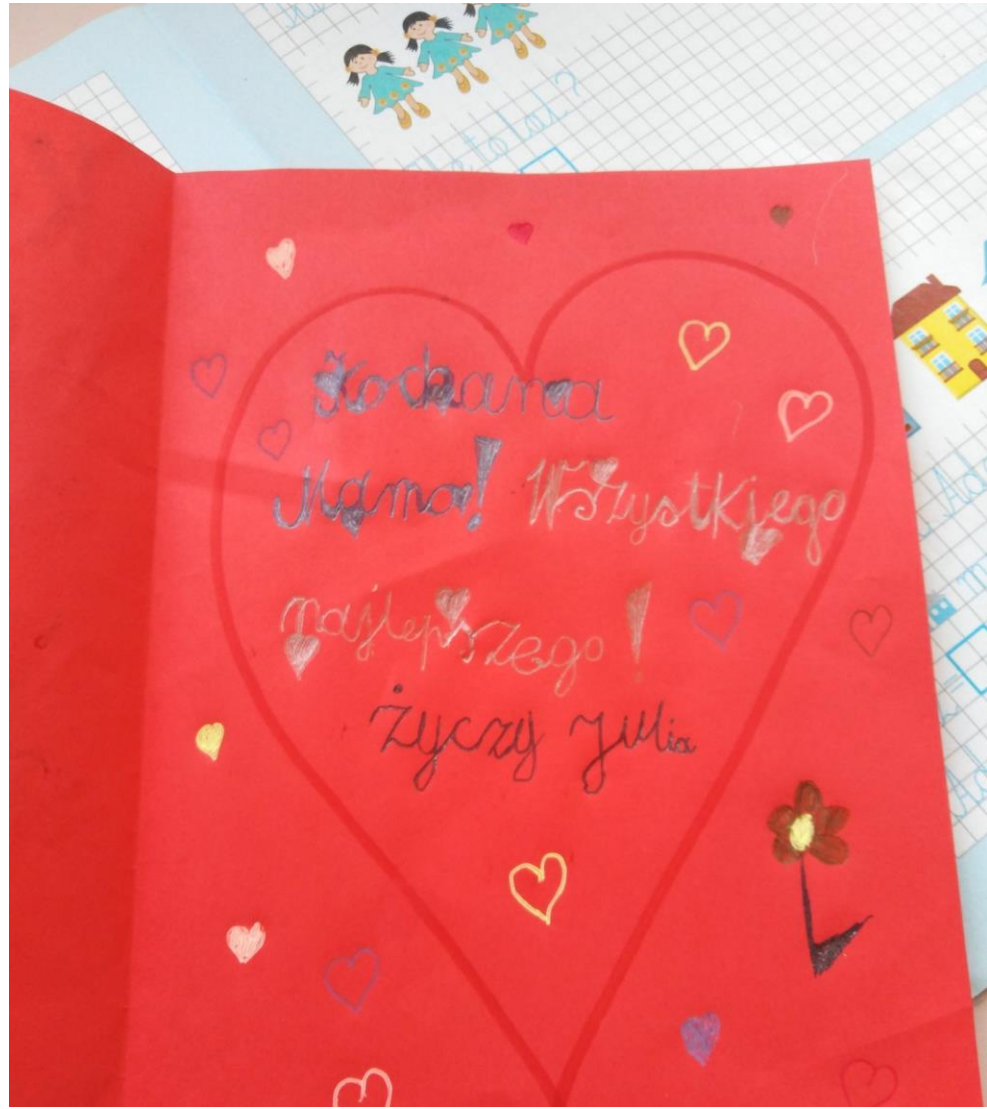 ile to lat?
Kochana
Mamo! Wszystkiego
najlepszego!
życzy Julia